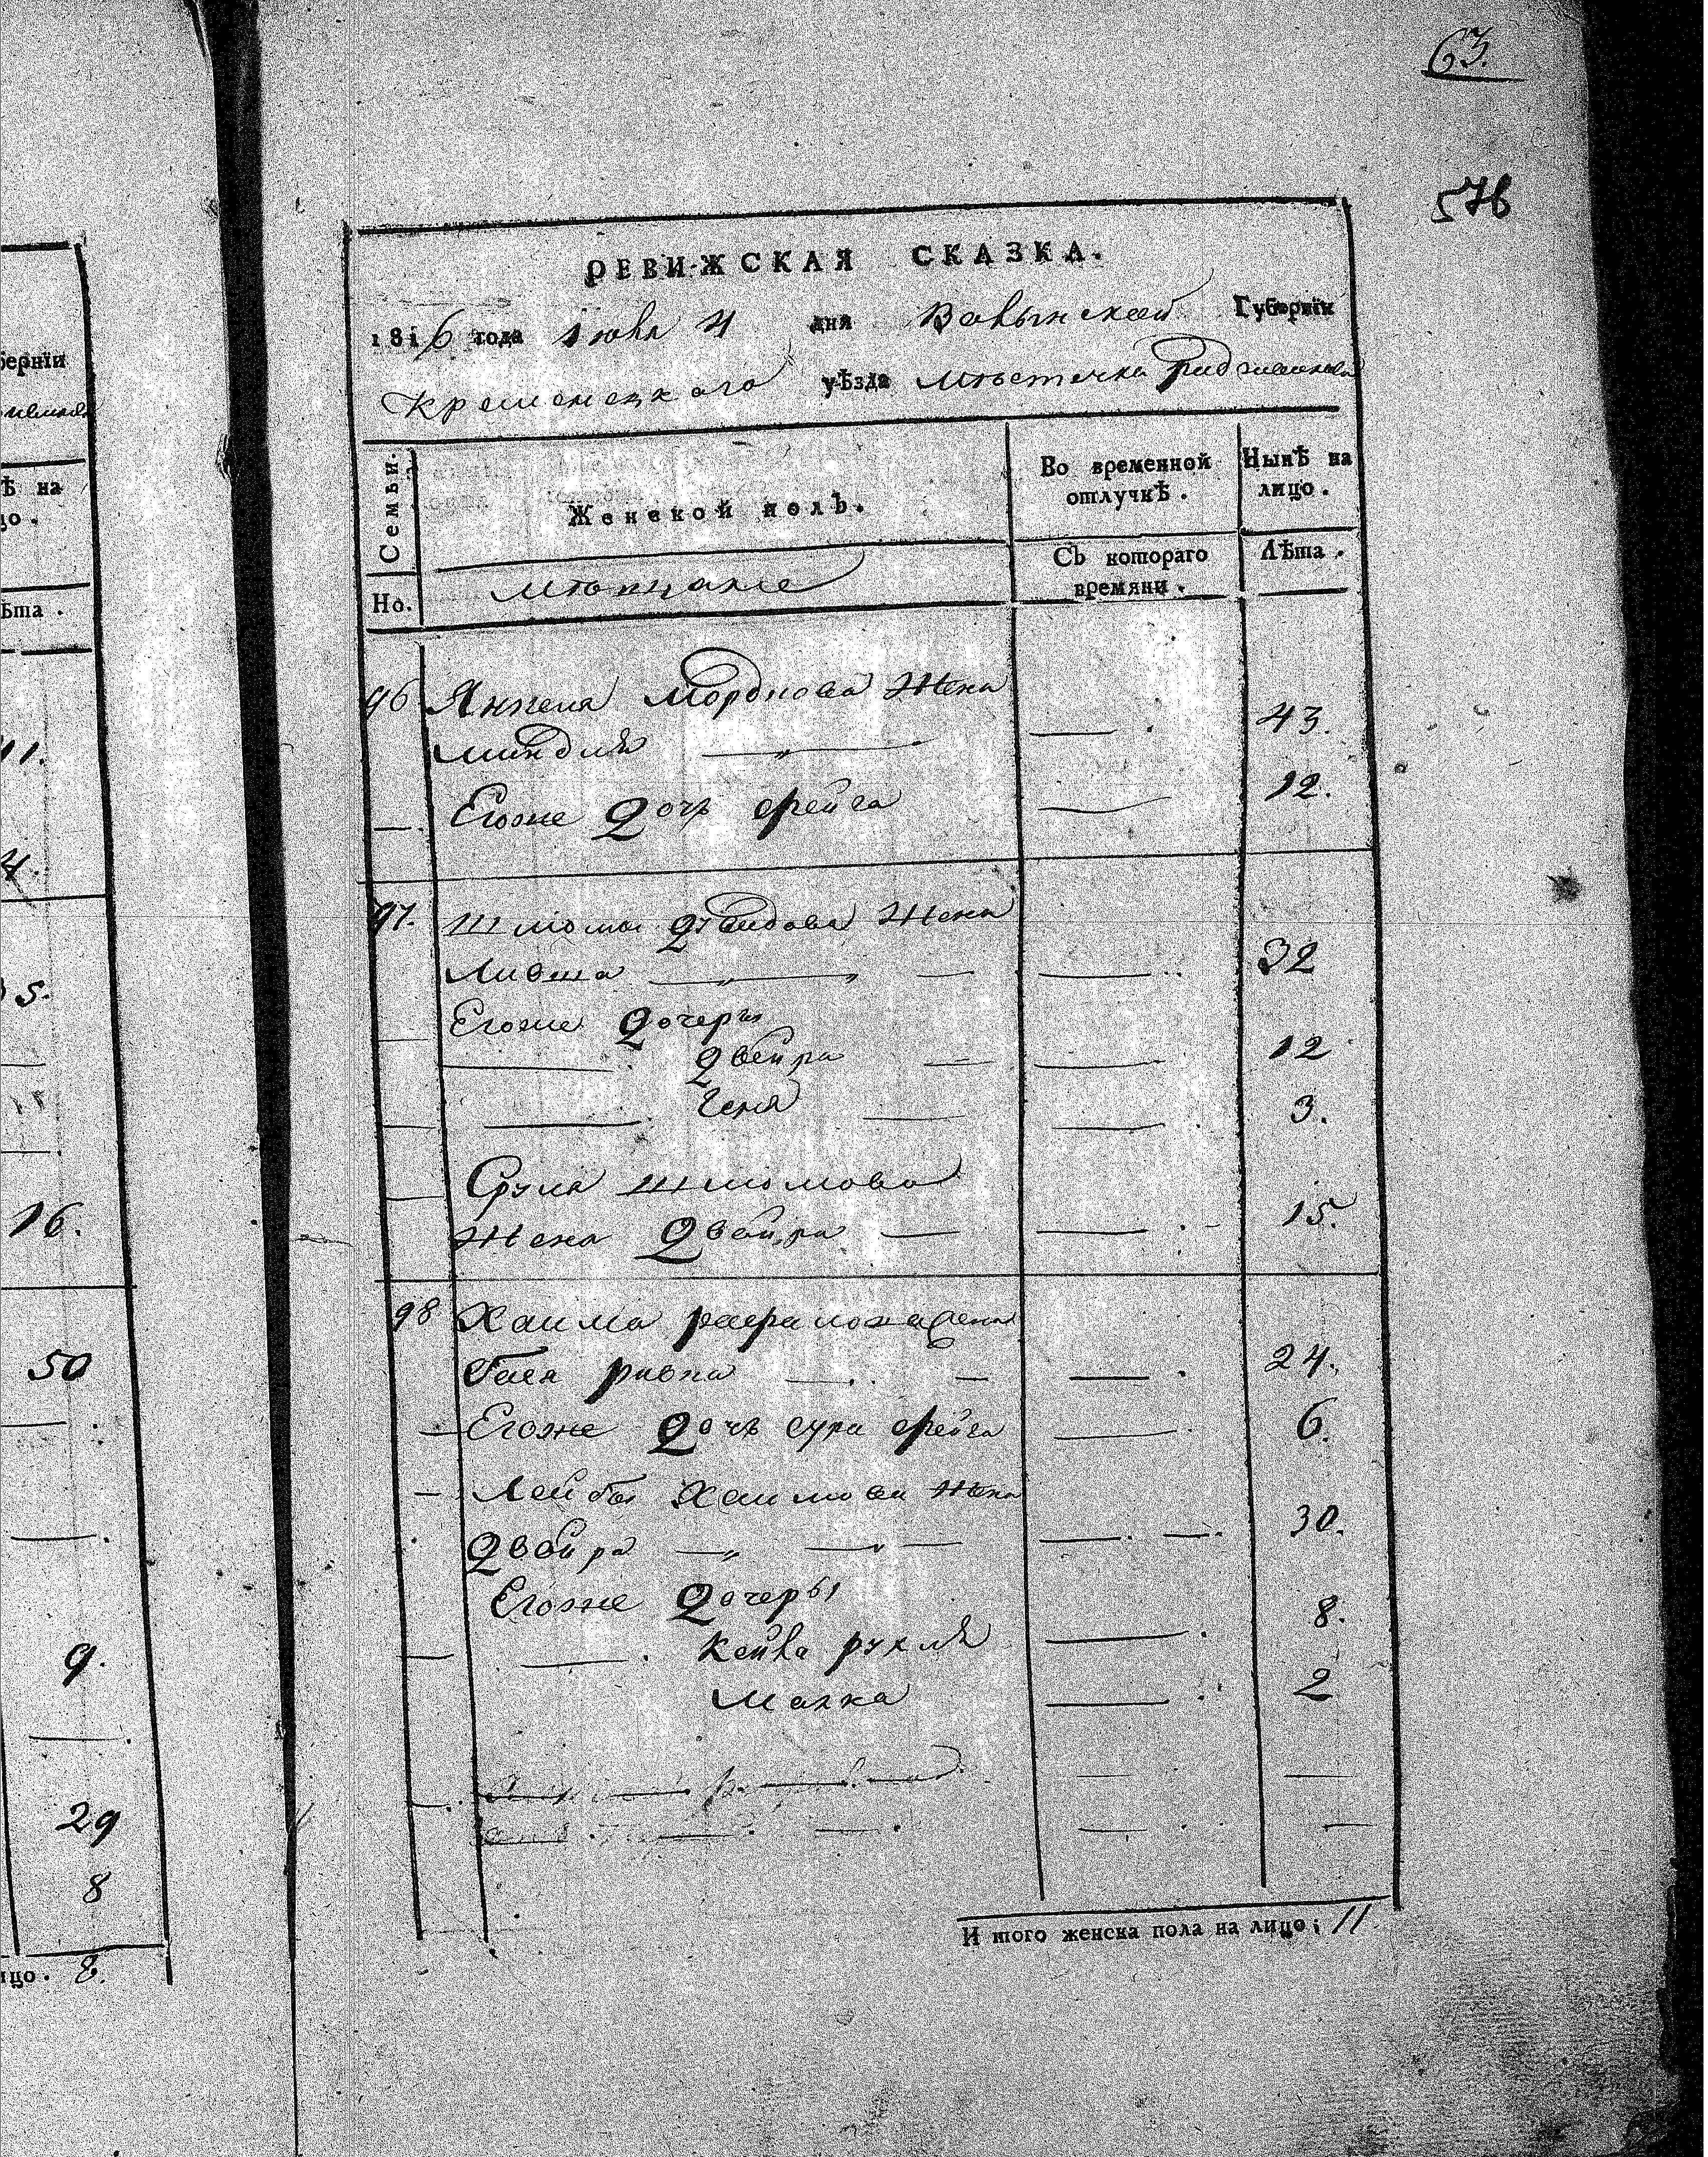 63.
576
РЕВИЖСКАЯ СКАЗКА.
1816 года Июля 4 дня Волынской Губернїи
Кременецкаго уѣзда Мѣстечка
Семьи.
Но.
Женской полъ.
Мѣщане
Во временной
отлучкѣ.
Съ котораго
времяни.
Нынѣ на
лицо.
Лѣта.
96 Янкеля Мордкова Жена
Миндля 43.
Егоже Дочь Фрейга 12.
97. Шломы Давидова Жена
Ливша 32
Егоже Дочеры
Двейра 12
Геня 3.
Сруля Шломова
Жена Двейра 15.
98 Хаима жена
Бася Ривка 24.
Егоже Дочь Сура Фрейга 6.
Лейбы Хаимова Жена
Двойра 30.
Егоже Дочеры
Рухля 8.
Малка 2
И того женска пола на лицо; 11
бернїи
ѣ на
цо.
ѣта.
11.
4.
5.
16.
50
9.
29
8
ицо. 8.